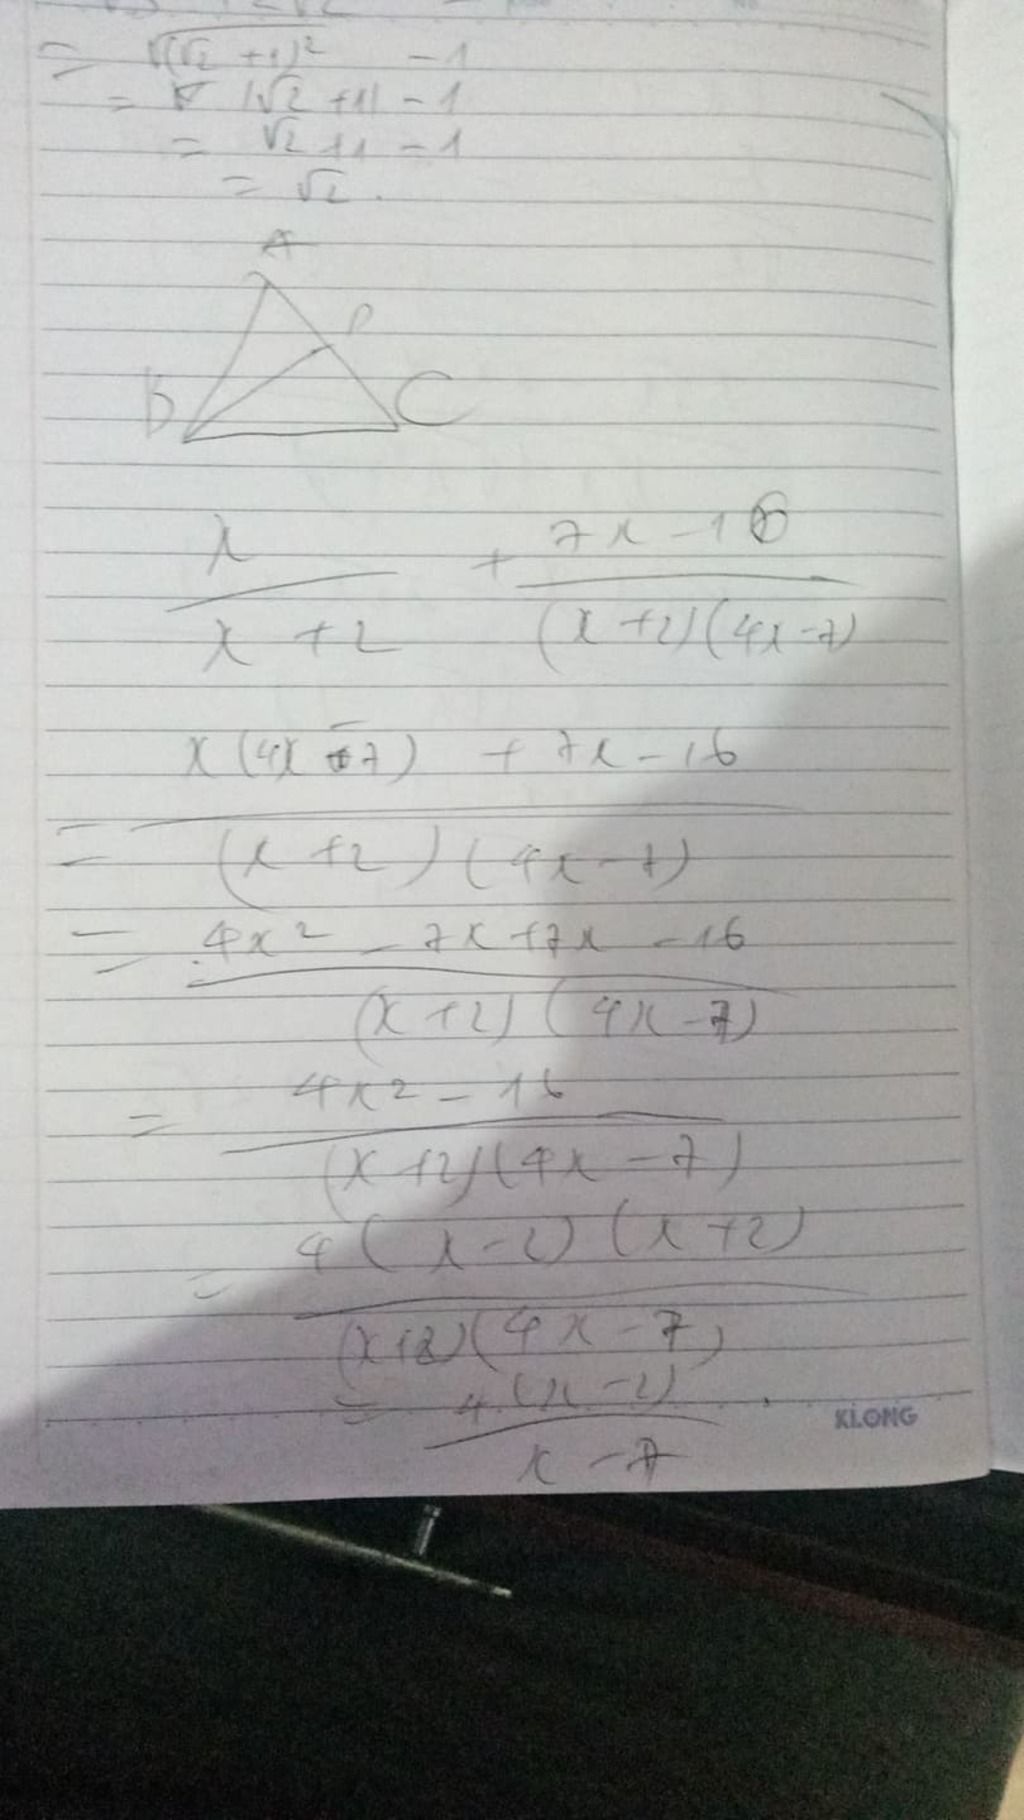 = √(√2 + 1)² - 1
= |√2 + 1| - 1
= √2 + 1 - 1
= √2.
A
P
B C
x / x + 2 + 7x - 16 / (x + 2)(4x - 7)
x(4x - 7) + 7x - 16
= / (x + 2)(4x - 7)
= 4x² - 7x + 7x - 16
(x + 2)(4x - 7)
= 4x² - 16
(x + 2)(4x - 7)
= 4(x - 2)(x + 2)
(x + 2)(4x - 7)
= 4(x - 2)
x - 7
KLONG